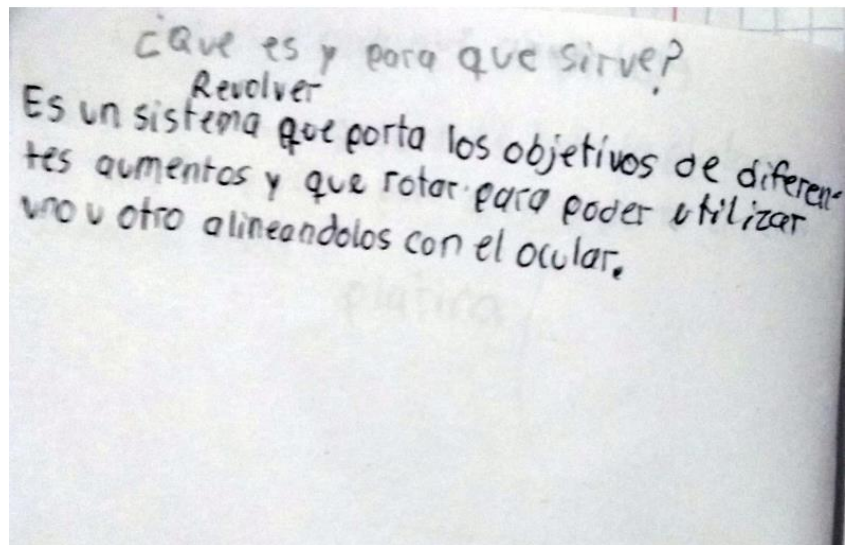 ¿Que es y para que sirve?
Revolver
Es un sistema que porta los objetivos de diferen-
tes aumentos y que rotar para poder utilizar
uno u otro alineandolos con el ocular.
platina